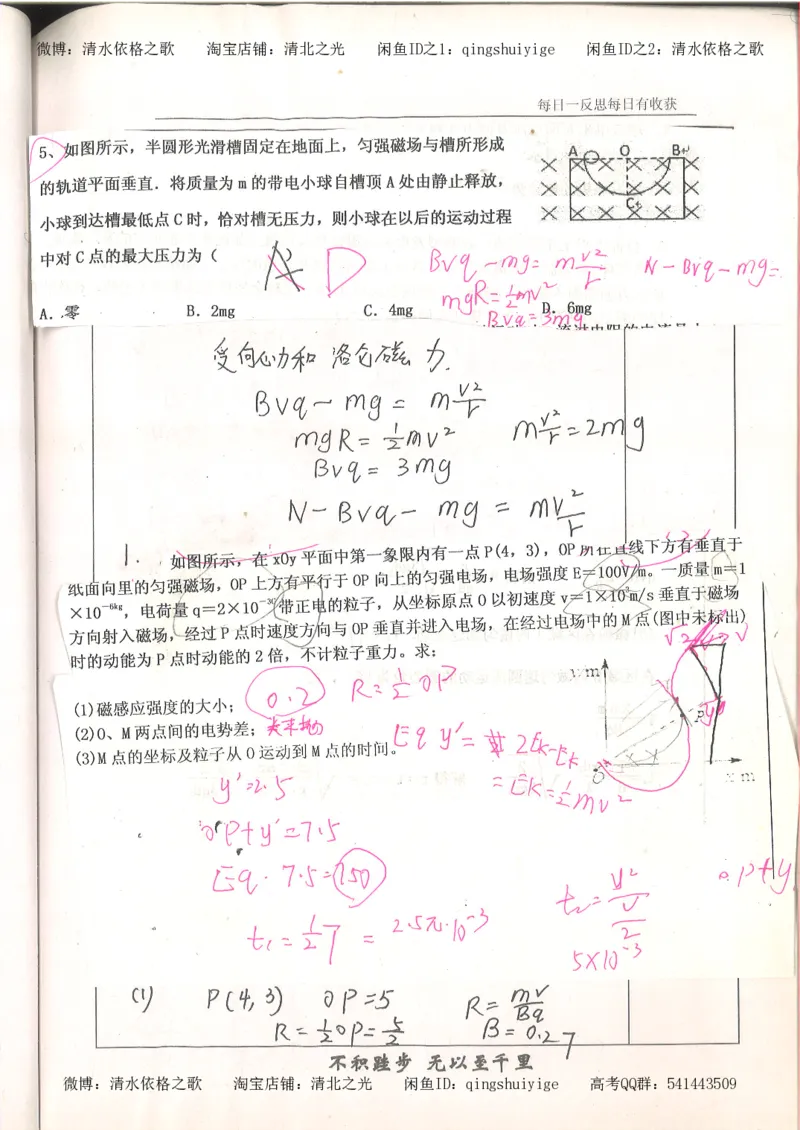 微博：清水依格之歌 淘宝店铺：清北之光 闲鱼ID之1：qingshuiyige 闲鱼ID之2：清水依格之歌
每日一反思每日有收获
5、如图所示，半圆形光滑槽固定在地面上，匀强磁场与槽所形成
的轨道平面垂直．将质量为 m 的带电小球自槽顶 A 处由静止释放，
小球到达槽最低点 C 时，恰对槽无压力，则小球在以后的运动过程
中对 C 点的最大压力为（
A O B
C
D
Bvq－mg＝m v²/r N－Bvq－mg＝
mgR＝½mv²
Bvq＝3mg
A．零 B．2mg C．4mg D．6mg
受向心力和洛仑磁力.
Bvq－mg＝m v²/r
mgR＝½mv² m v²/r＝2mg
Bvq＝3mg
N－Bvq－mg＝mv²/r
1. 如图所示，在 xOy 平面中第一象限内有一点 P(4，3)，OP 所在直线下方有垂直于
纸面向里的匀强磁场，OP 上方有平行于 OP 向上的匀强电场，电场强度 E＝100V/m。一质量 m＝1
×10⁻⁶ᵏᵍ，电荷量 q＝2×10⁻³ᶜ带正电的粒子，从坐标原点 O 以初速度 v＝1×10³m/s 垂直于磁场
方向射入磁场，经过 P 点时速度方向与 OP 垂直并进入电场，在经过电场中的 M 点(图中未标出)
时的动能为 P 点时动能的 2 倍，不计粒子重力。求：
y m
P
O x m
(1)磁感应强度的大小； 0.2 R＝½OP
(2)O、M 两点间的电势差；
(3)M 点的坐标及粒子从 O 运动到 M 点的时间。
Eq y′＝2Ek－Ek
＝Ek＝½mv²
y′＝2.5
OP+y′＝7.5
Eq·7.5＝150
OP+y
t₁＝½T＝2.5π·10⁻³
5×10⁻³
(1) P(4,3) OP＝5 R＝mv/Bq
R＝½OP＝5/2 B＝0.2T
不积跬步 无以至千里
微博：清水依格之歌 淘宝店铺：清北之光 闲鱼ID：qingshuiyige 高考QQ群：541443509